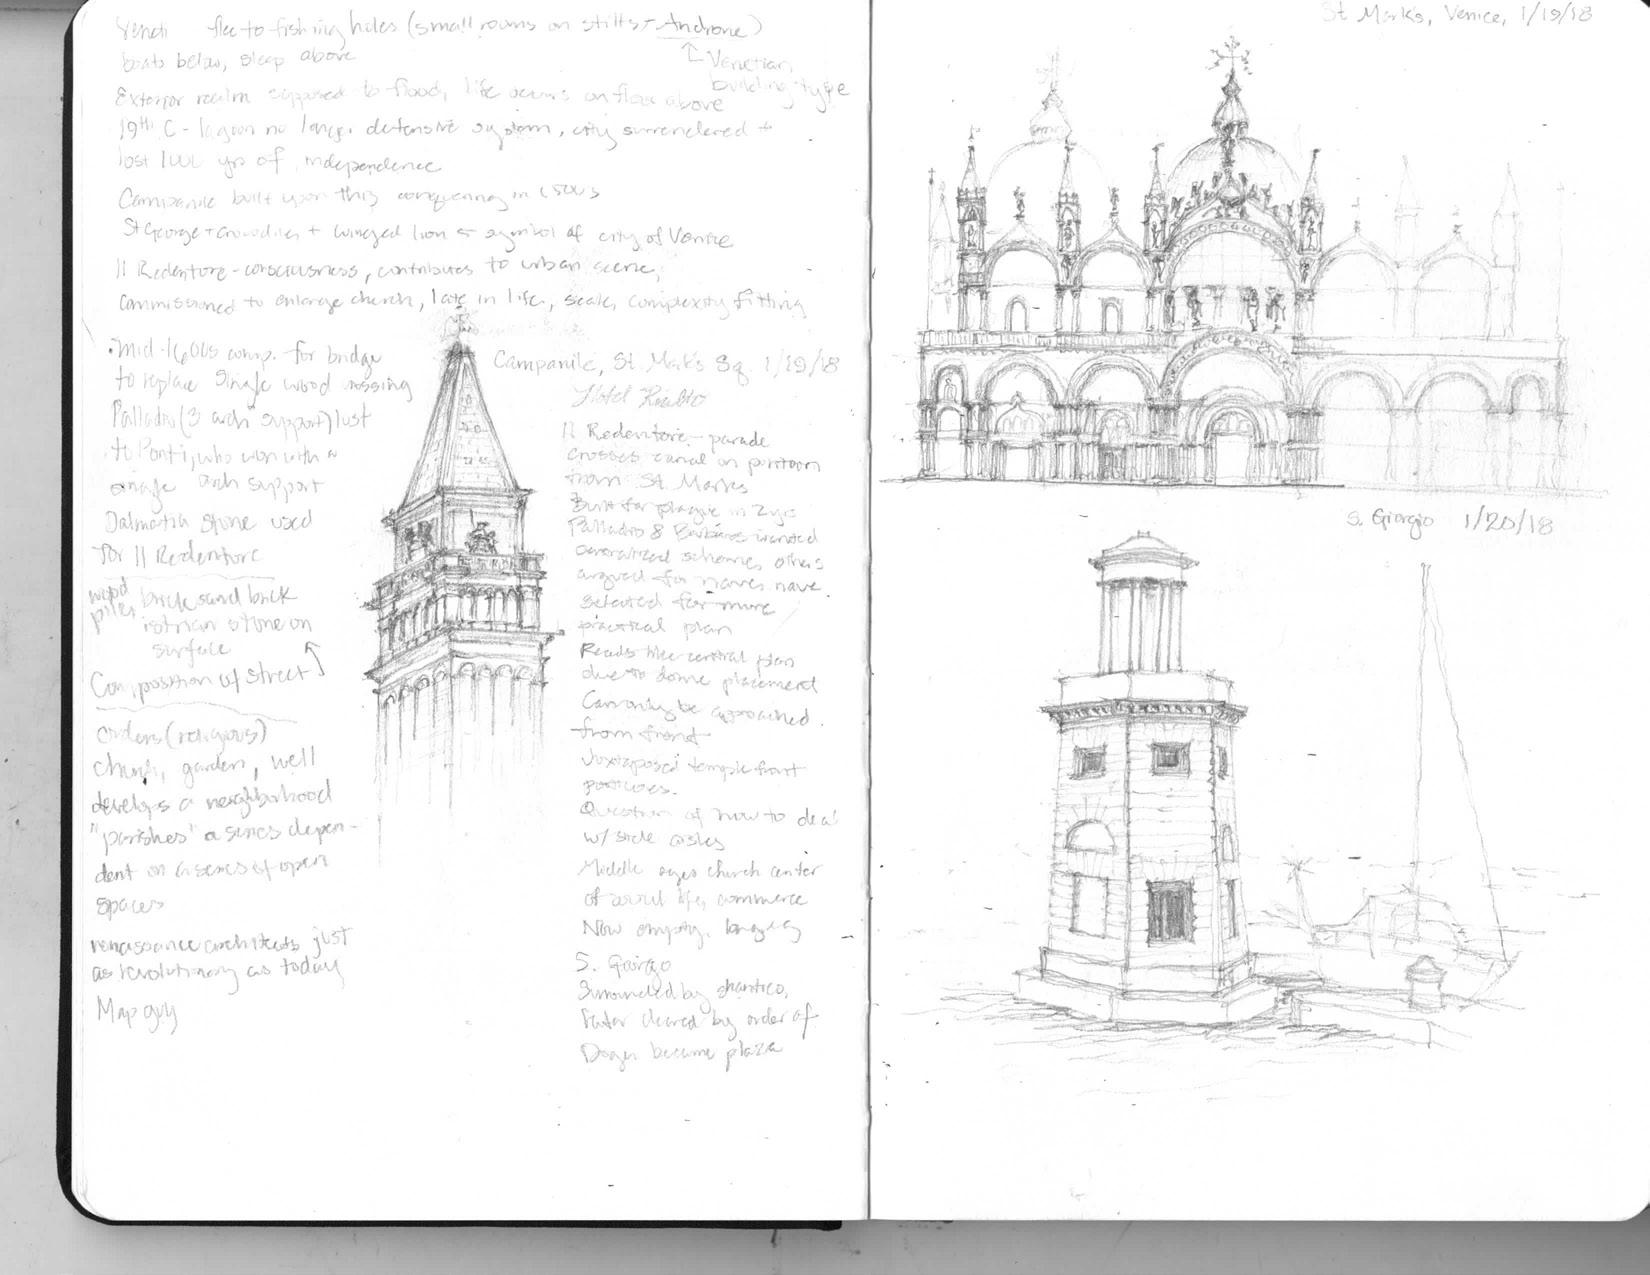 flee to fishing holes (small rooms on stilts - Androne)
boats below, sleep above
Venetian
building type
Exterior realm supposed to flood, life occurs on floor above
19th C - lagoon no longer defensive system, city surrendered +
lost 1000 yrs of independence
Campanile built upon this conquering in 1500s
St George + Crocodiles + winged lion = symbol of city of Venice
Il Redentore - consciousness, contributes to urban scene,
commissioned to enlarge church, late in life, scale, complexity fitting
• Mid-1600s comp. for bridge
to replace single wood crossing
Palladio (3 arch support) lost
to Ponti, who won with a
single arch support
Dalmatia Stone used
for Il Redentore
wood
piles
brick sand brick
istrian stone on
surface
Composition of street
Orders (religious)
church, garden, well
develops a neighborhood
"parishes" a series depen-
dent on a series of open
spaces
renaissance architects just
as revolutionary as today
Map guy
Campanile, St. Mark's Sq. 1/19/18
Hotel Rialto
Il Redentore - parade
crosses canal on pontoon
from St. Marks
Built for plague in 2 yrs
Palladio & Barbaro wanted
centralized scheme, others
argued for naves nave
selected for more
practical plan
Reads like central plan
due to dome placement
Can only be approached
from front
Juxtaposed temple front
porticoes.
Question of how to deal
w/ side aisles
Middle ages church center
of social life, commerce
Now empty,
S. Giorgio
Surrounded by
later cleared by order of
Doge, became plaza
St Mark's, Venice, 1/19/18
S. Giorgio 1/20/18